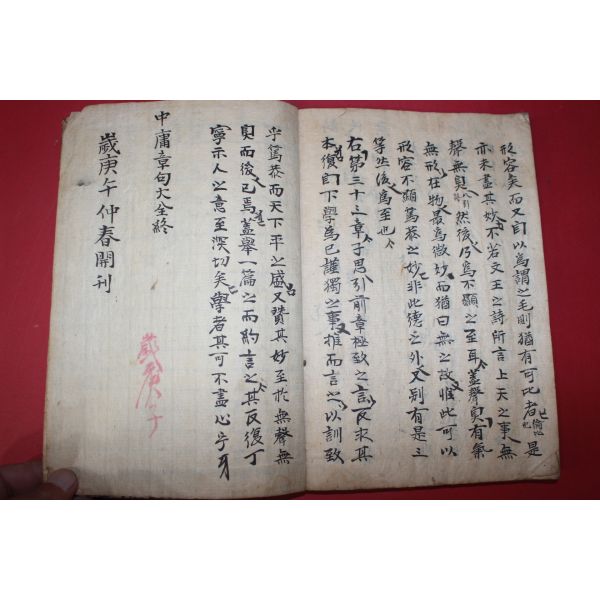 形容矣而又自以爲謂之毛則猶有可比者是
亦未盡其妙不若文王之詩所言上天之事無
聲無臭然後乃爲不顯之至耳蓋聲臭有氣
無形在物最爲微妙而猶曰無之故惟此可以
形容不顯篤恭之妙非此德之外又別有是三
等然後爲至也
右第三十三章子思引前章極致之言反求其
本復自下學爲己謹獨之事推而言之以訓致
乎篤恭而天下平之盛又贊其妙至於無聲無
臭而後已焉蓋舉一篇之而約言之其反復丁
寧示人之意至深切矣學者其可不盡心乎
中庸章句大全終
歲庚午仲春開刊
歲庚子